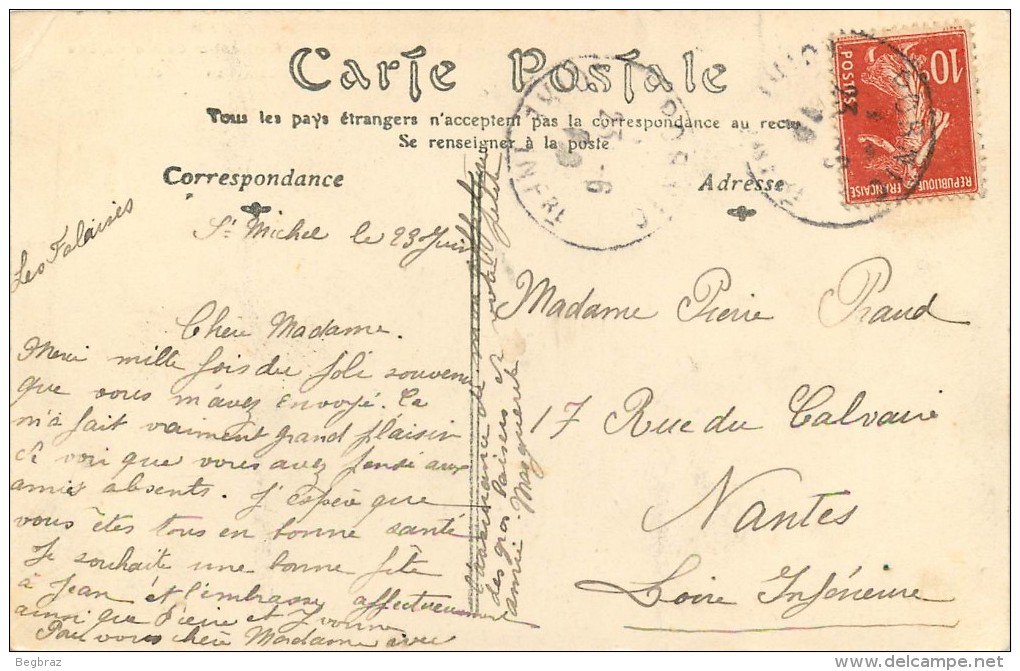 Carte Postale
Tous les pays étrangers n'acceptent pas la correspondance au recto
Se renseigner à la poste
Correspondance
Adresse
10c
POSTES
REPUBLIQUE FRANÇAISE
PORNIC
Les Falaises
St Michel le 23 Juin
Chère Madame.
Merci mille fois du joli souvenir
que vous m'avez envoyé. Ca
m'a fait vraiment grand plaisir
de voir que vous avez pensé aux
amis absents. J'espère que
vous êtes tous en bonne santé
Je souhaite une bonne fête
à Jean et l'embrasse affectueusement
ainsi que Pierre et Yvonne
Pour vous chère Madame avec
l'assurance de ma meilleure
des gros baisers de votre petite
amie Marguerite
Madame Pierre Praud
17 Rue du Calvaire
Nantes
Loire Inférieure
Begbraz
delcampe.net